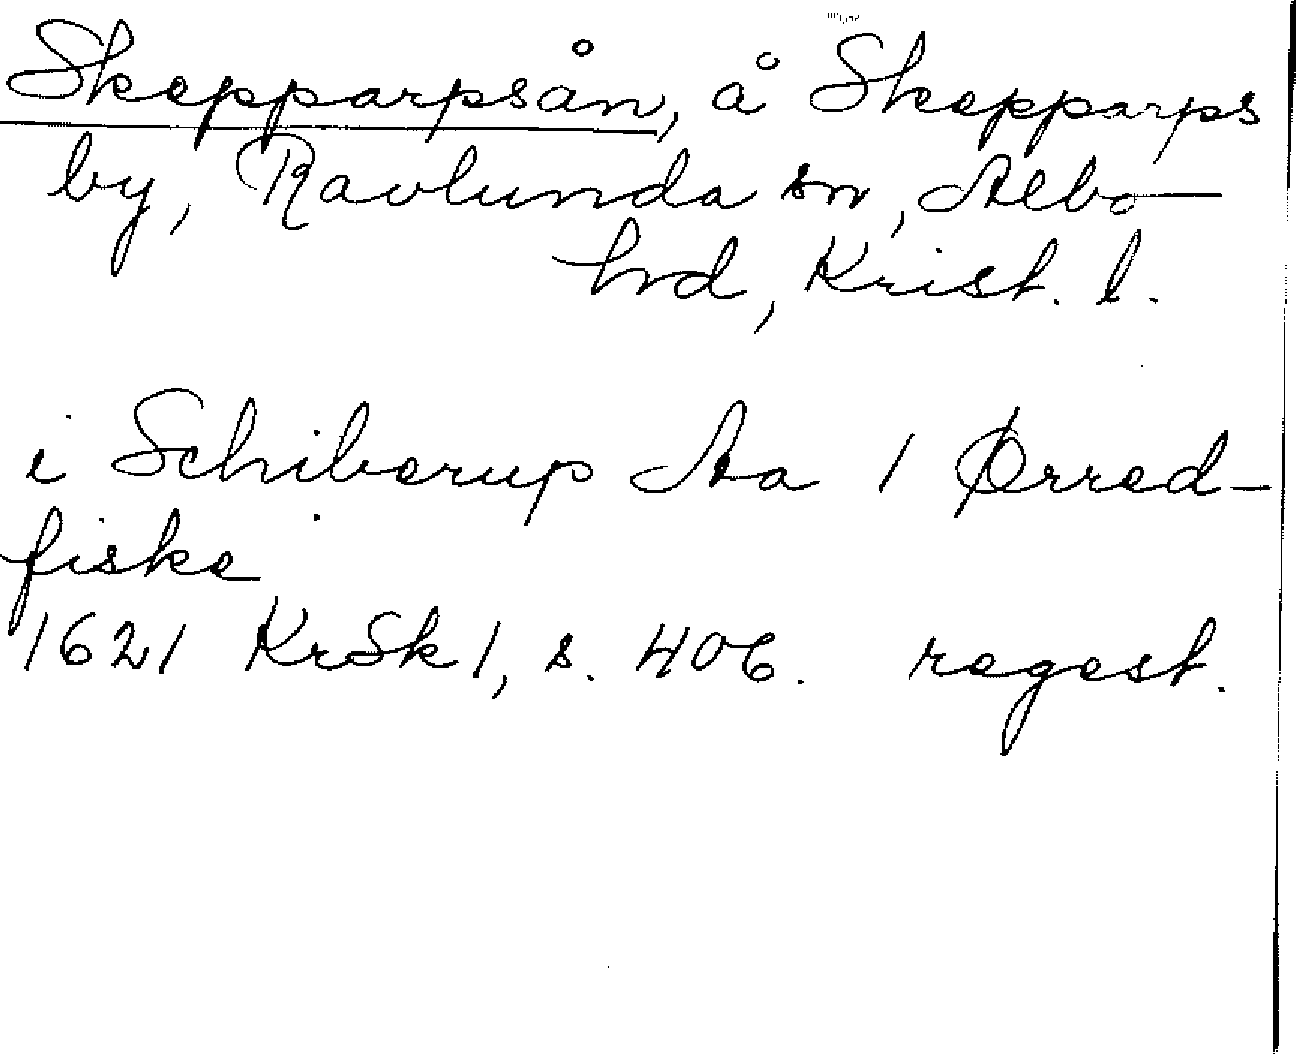 Skepparpsån, å Skepparps
by, Ravlunda sn, Albo
hrd, Krist. l.
i Schiberup Aa 1 Ørred-
fiske
1621 KrSk 1, s. 406. regest.